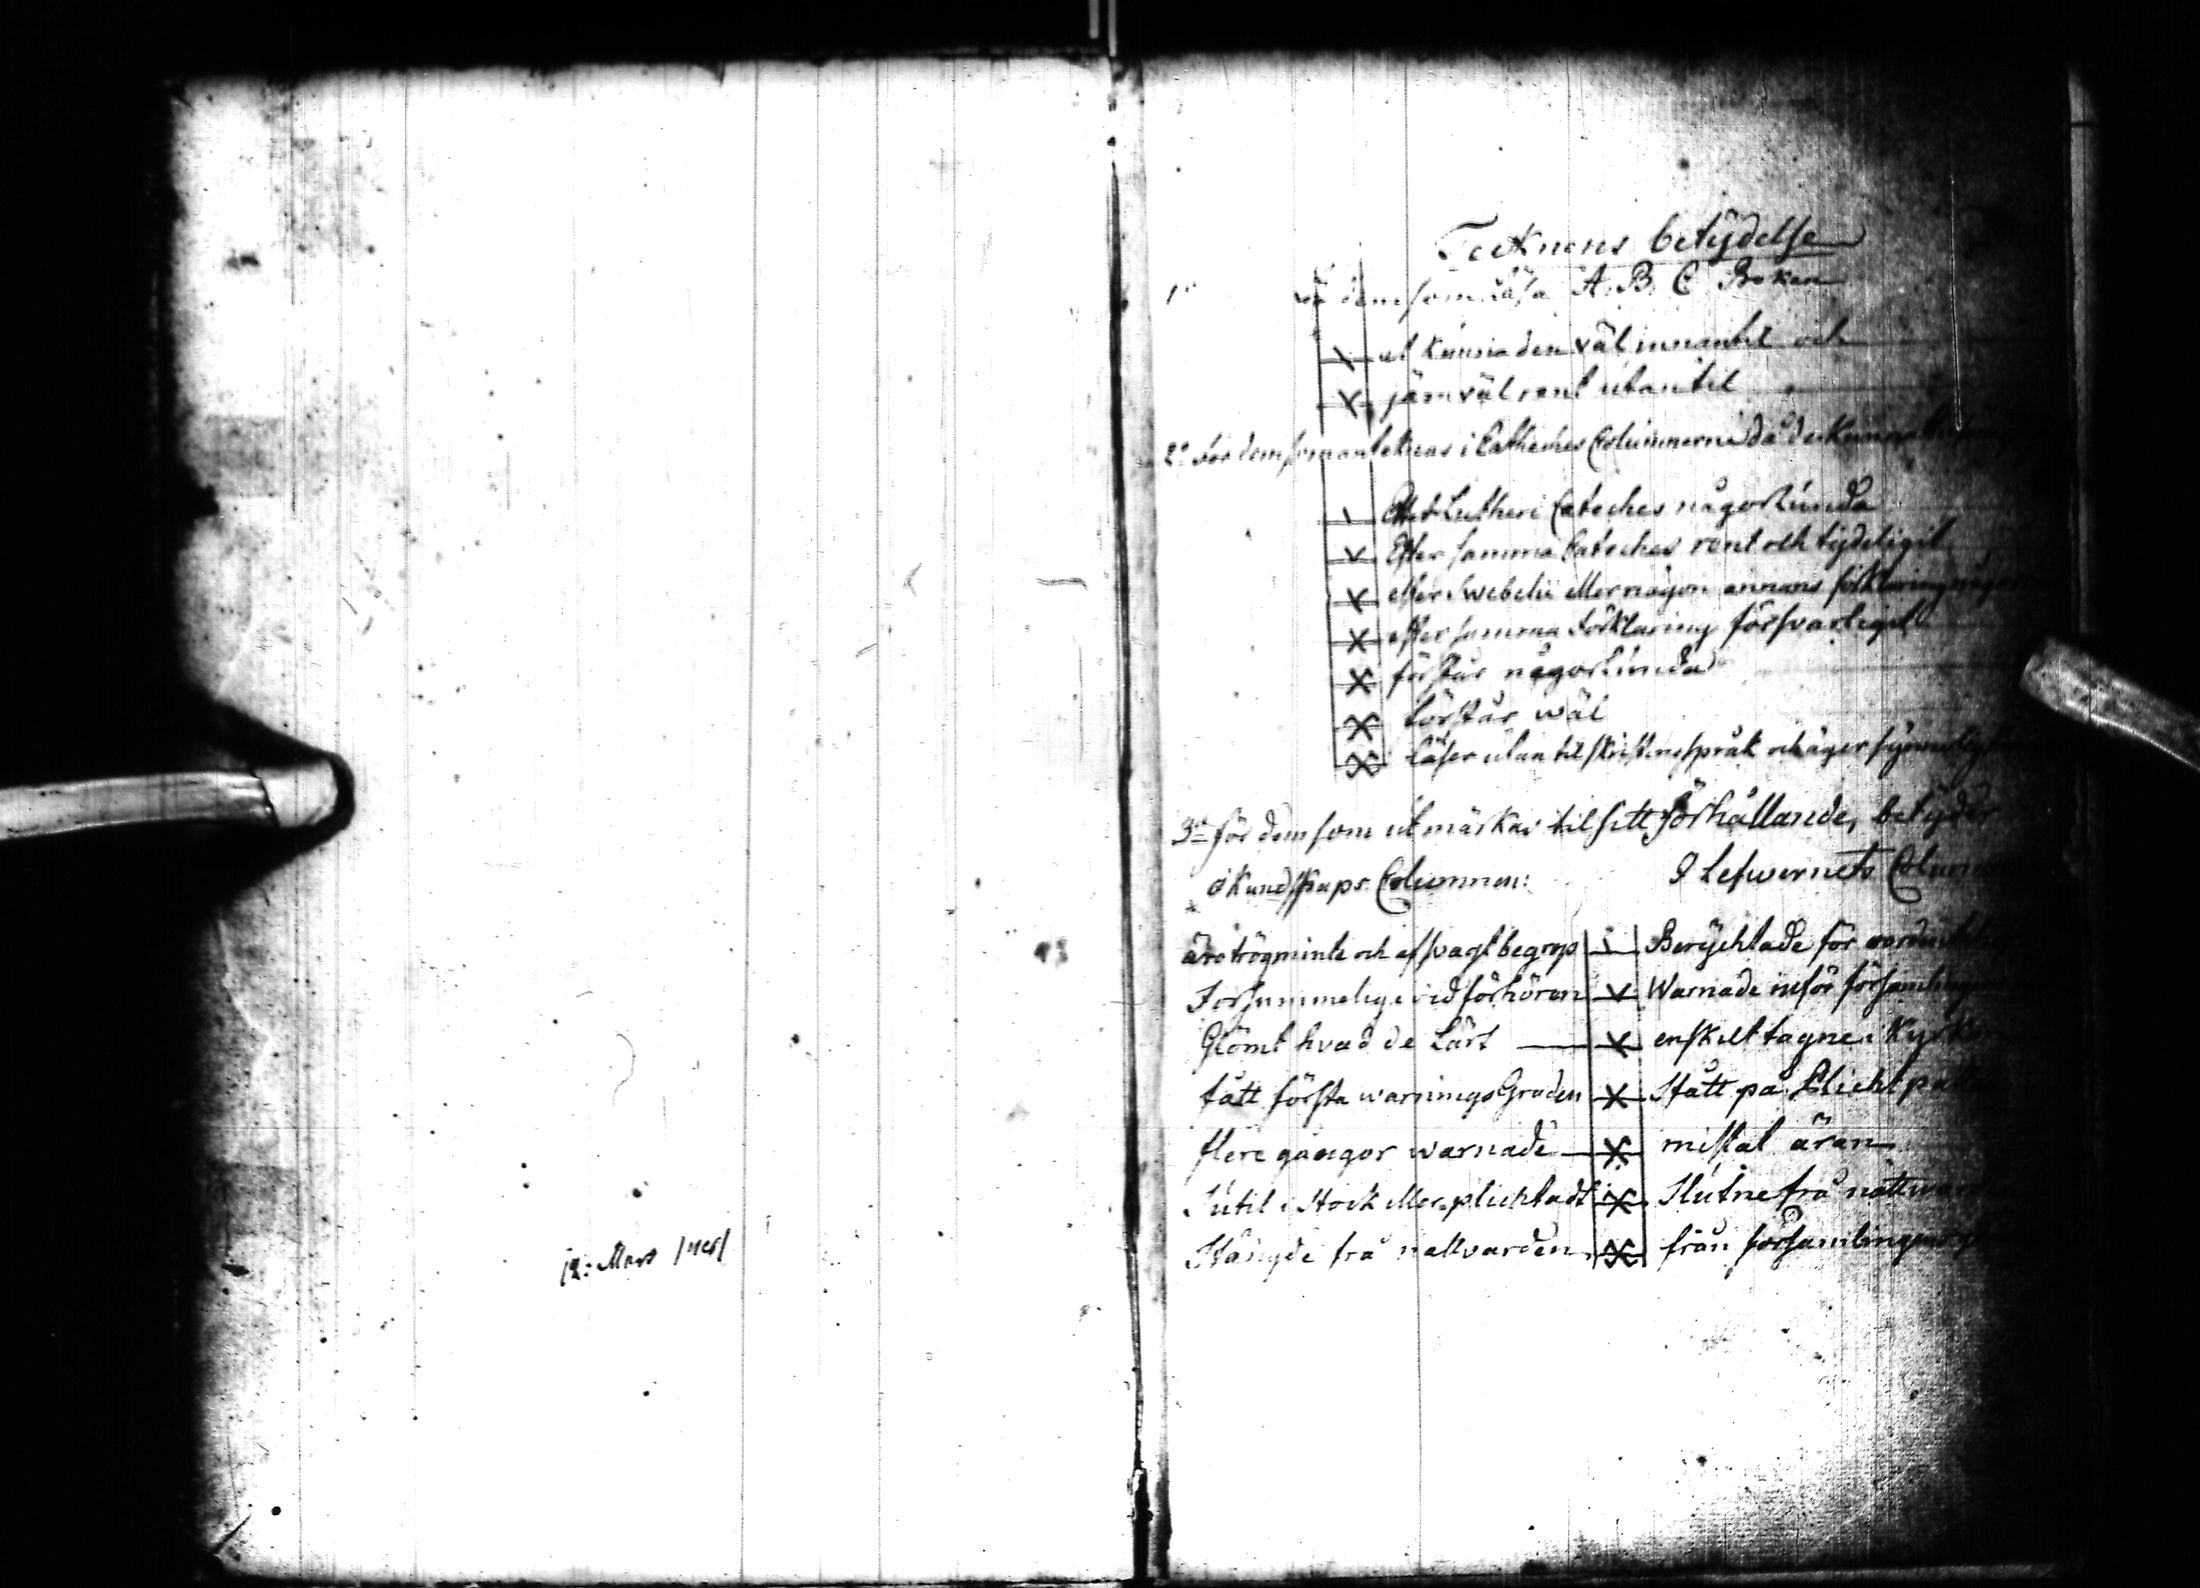 12: Mars
Tecknens betydelse
1o dem som Läsa A. B. C Boken
at kunna den väl innantil och
jämväl rent utantil
2o för dem som anteknas i Catheches Columnerne då de kunna
Efter Lutheri Cateches någorlunda
Efter samma Cateches rent och tydeligit
efter Swebelii eller någon annans förklaring
efter samma Förklaring försvarligit
förstår någorlunda
förstår wäl
läser utantil skriftenes språk och äger
3o för dem som utmärkas til sitt förhållande, betyder
Kundskaps Columnen:
I Lefwernets
äro trögminte och af svagt begrep
Berychtade för
Forsummelige vid förhören
Warnade inför
Glömt hvad de Lärt
enskilt tagne i
fått första warningsGraden
Stått på
flere gångor warnade
mistat äran
Sutit i Stock eller plichtadt
Slutne frå
Stängde frå nattvarden
från